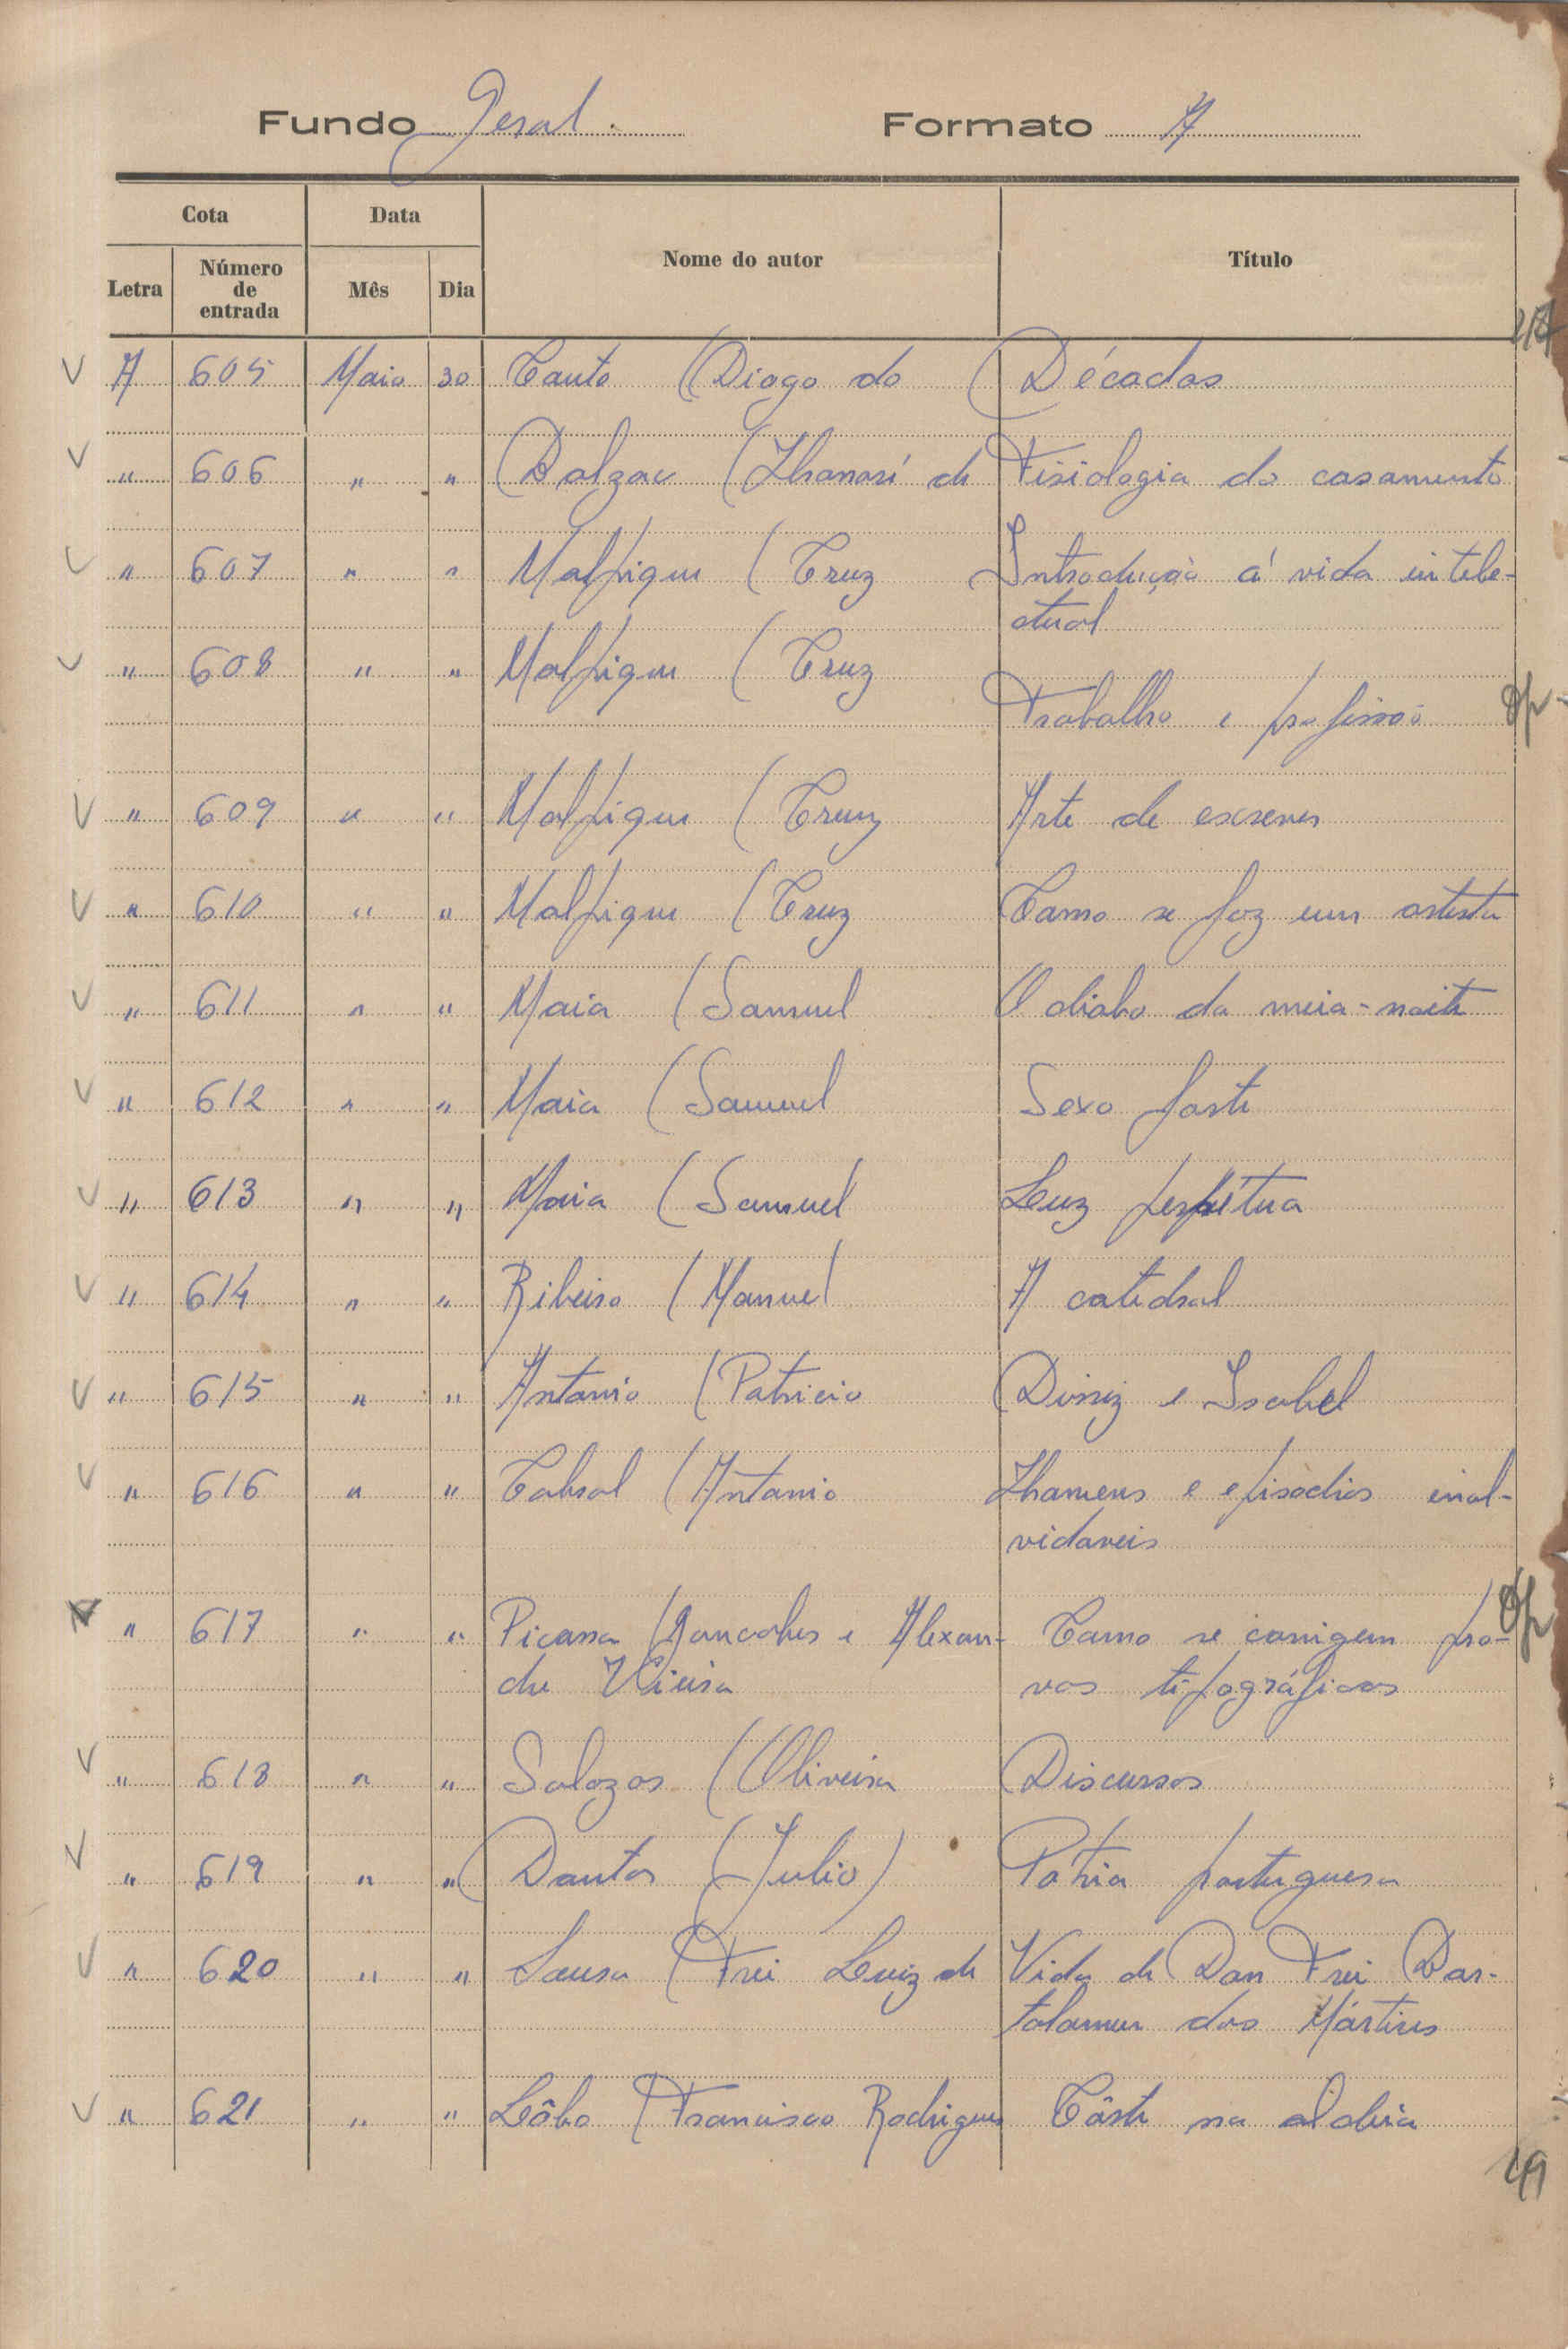 Fundo Geral. Formato A
Cota Data Nome do autor Título
Letra Número de entrada Mês Dia
A 605 Maio 30 Couto (Diogo do Décadas
" 606 " " Balzac (Honoré de Fisiologia do casamento
" 607 " " Malpique (Cruz Introdução á vida intele-
ctual
" 608 " " Malpique (Cruz
Trabalho e profissão
" 609 " " Malpique (Cruz Arte de escrever
" 610 " " Malpique (Cruz Como se faz um artista
" 611 " " Maia (Samuel O diabo da meia-noite
" 612 " " Maia (Samuel Sexo forte
" 613 " " Maia (Samuel Luz perpétua
" 614 " " Ribeiro (Manuel A catedral
" 615 " " Antonio (Patricio Diniz e Isabel
" 616 " " Cabral (Antonio Homens e episodios inol-
vidaveis
" 617 " " Picassa (Goncalves e Alexan- Como se corrigem pro-
dre Vieira vas tipográficas
" 618 " " Salazar (Oliveira Discursos
" 619 " " Dantas (Julio) Pátria portuguesa
" 620 " " Sousa (Frei Luiz de Vida de Dom Frei Bar-
tolomeu dos Mártires
" 621 " " Lôbo (Francisco Rodrigues Côrte na aldeia
49